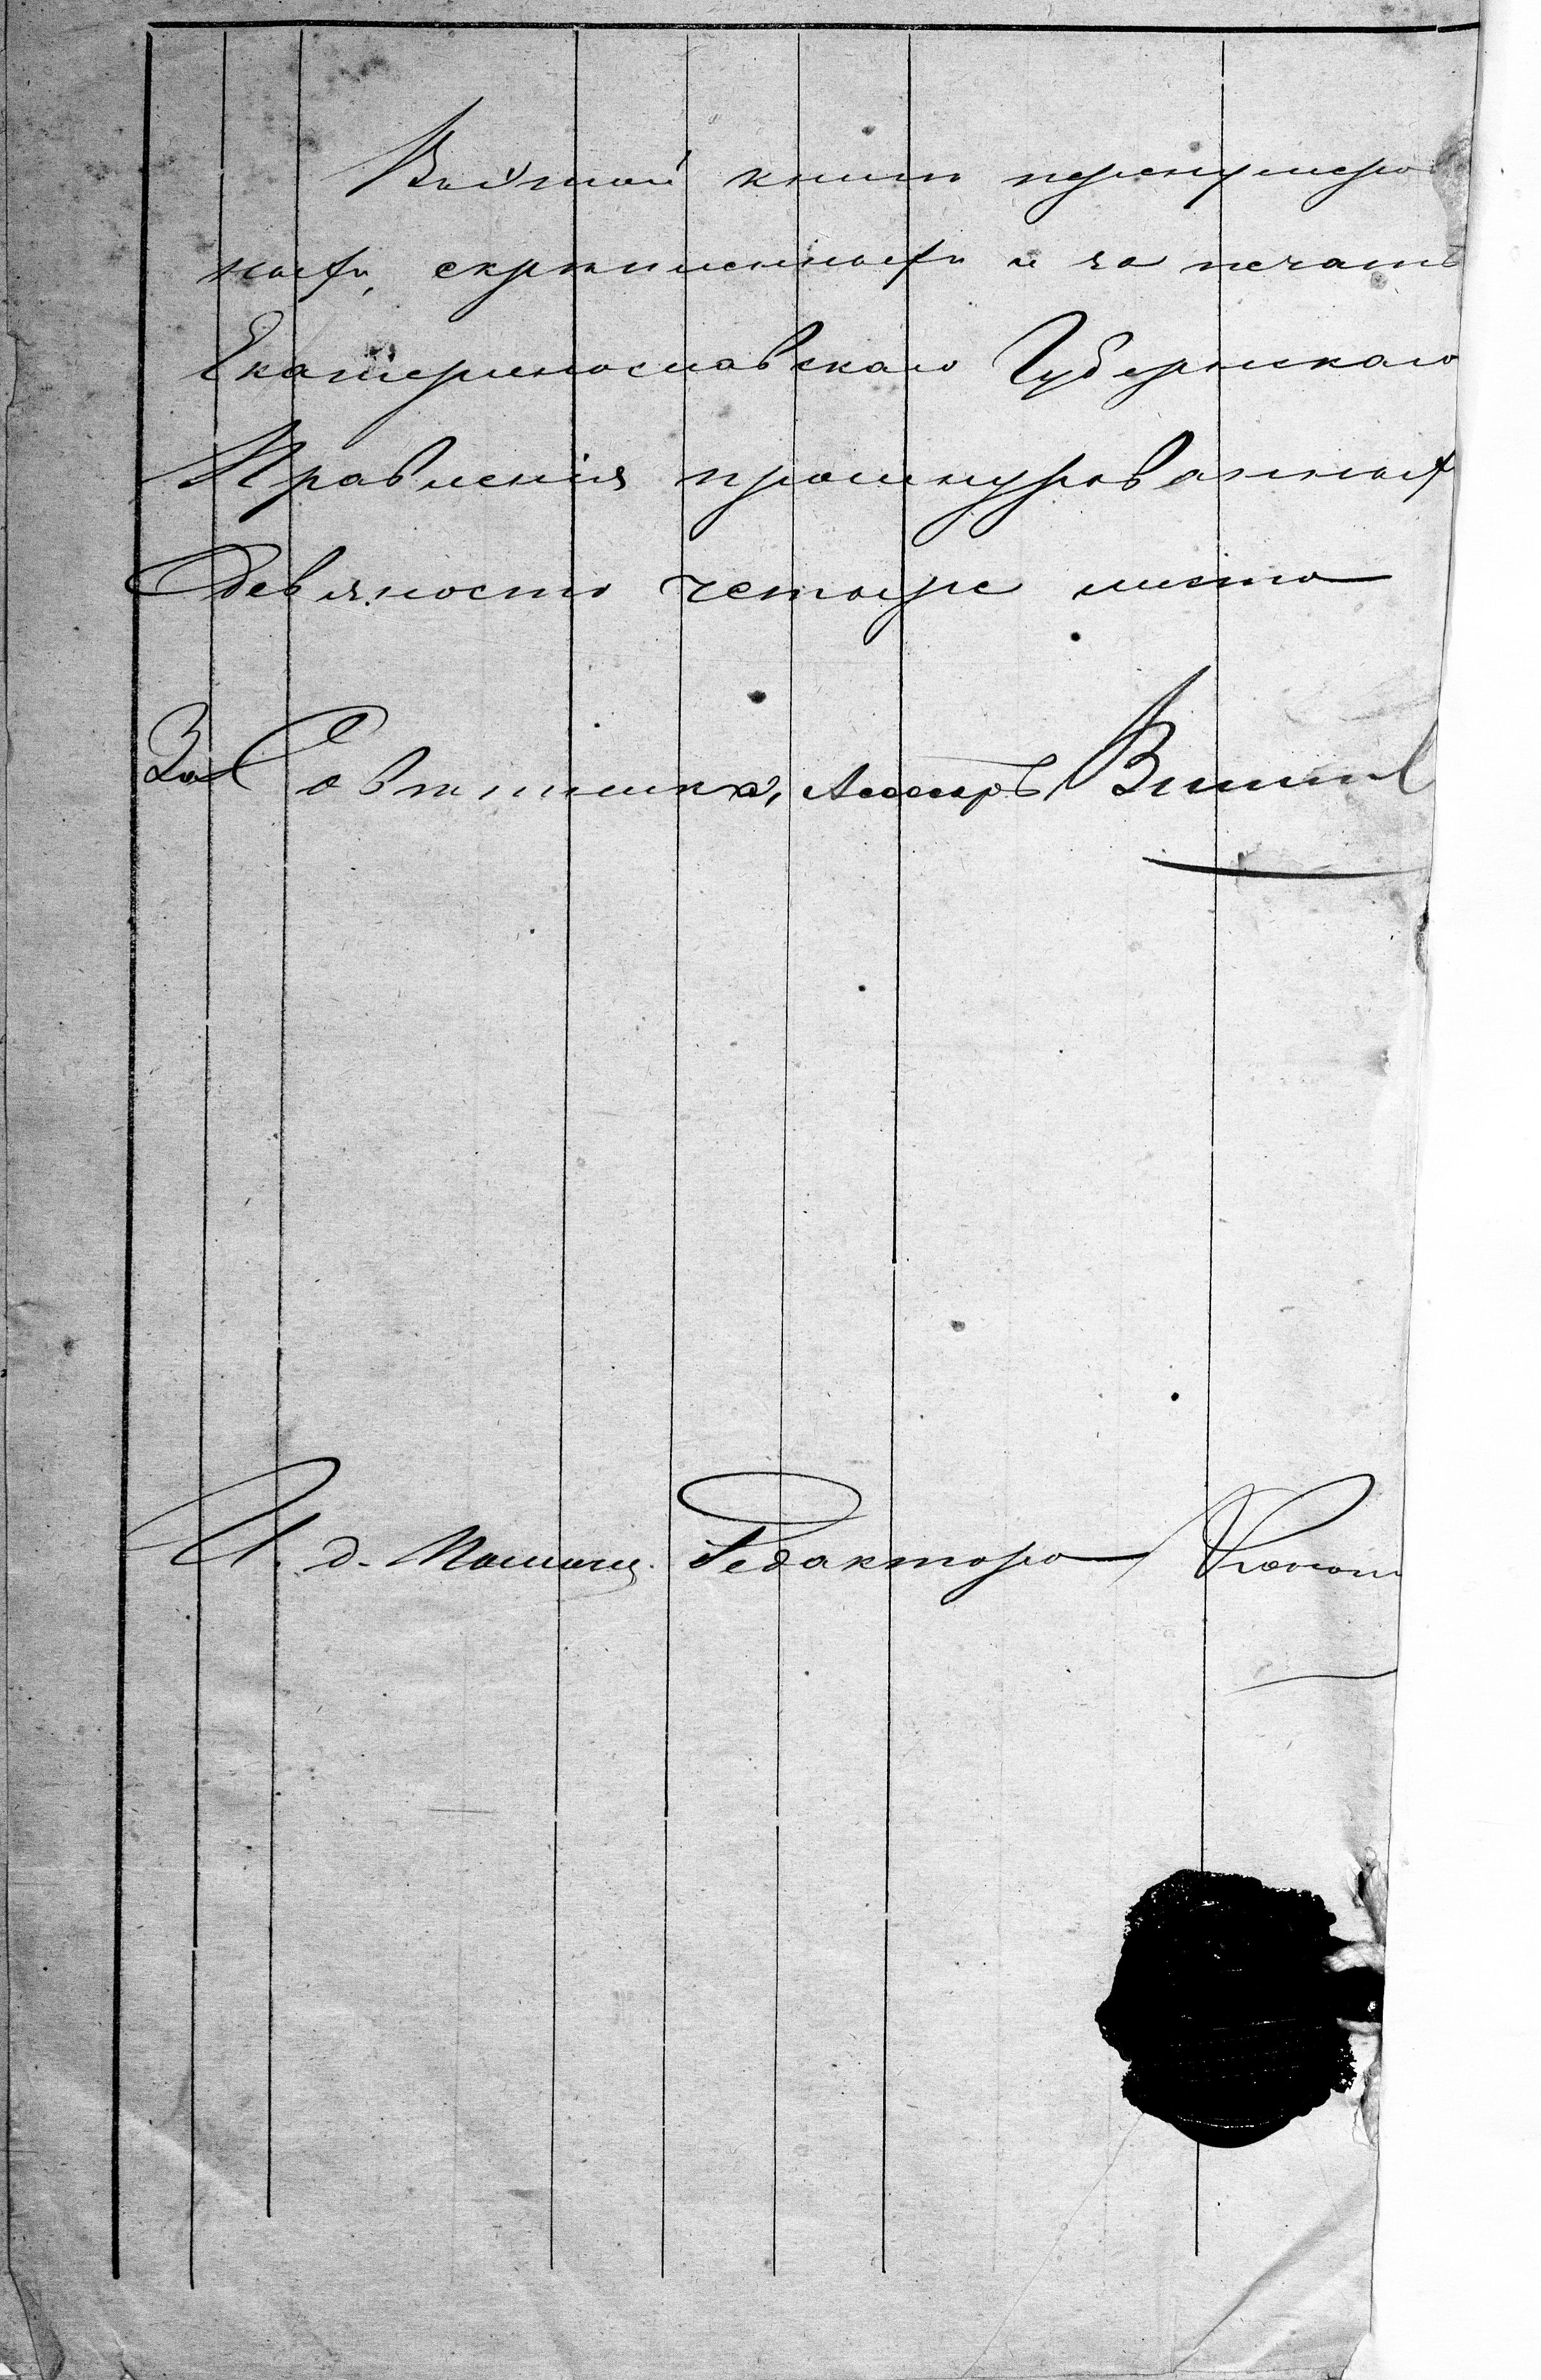 Въ этой книги перенумеро
ныхъ, скрѣпленныхъ и за печать
Екатеринославскаго Губернскаго
Правленія прошнурованныхъ
девяносто четыре листа
За Совѣтника, Асессоръ
И. д. Помощ. Редактора